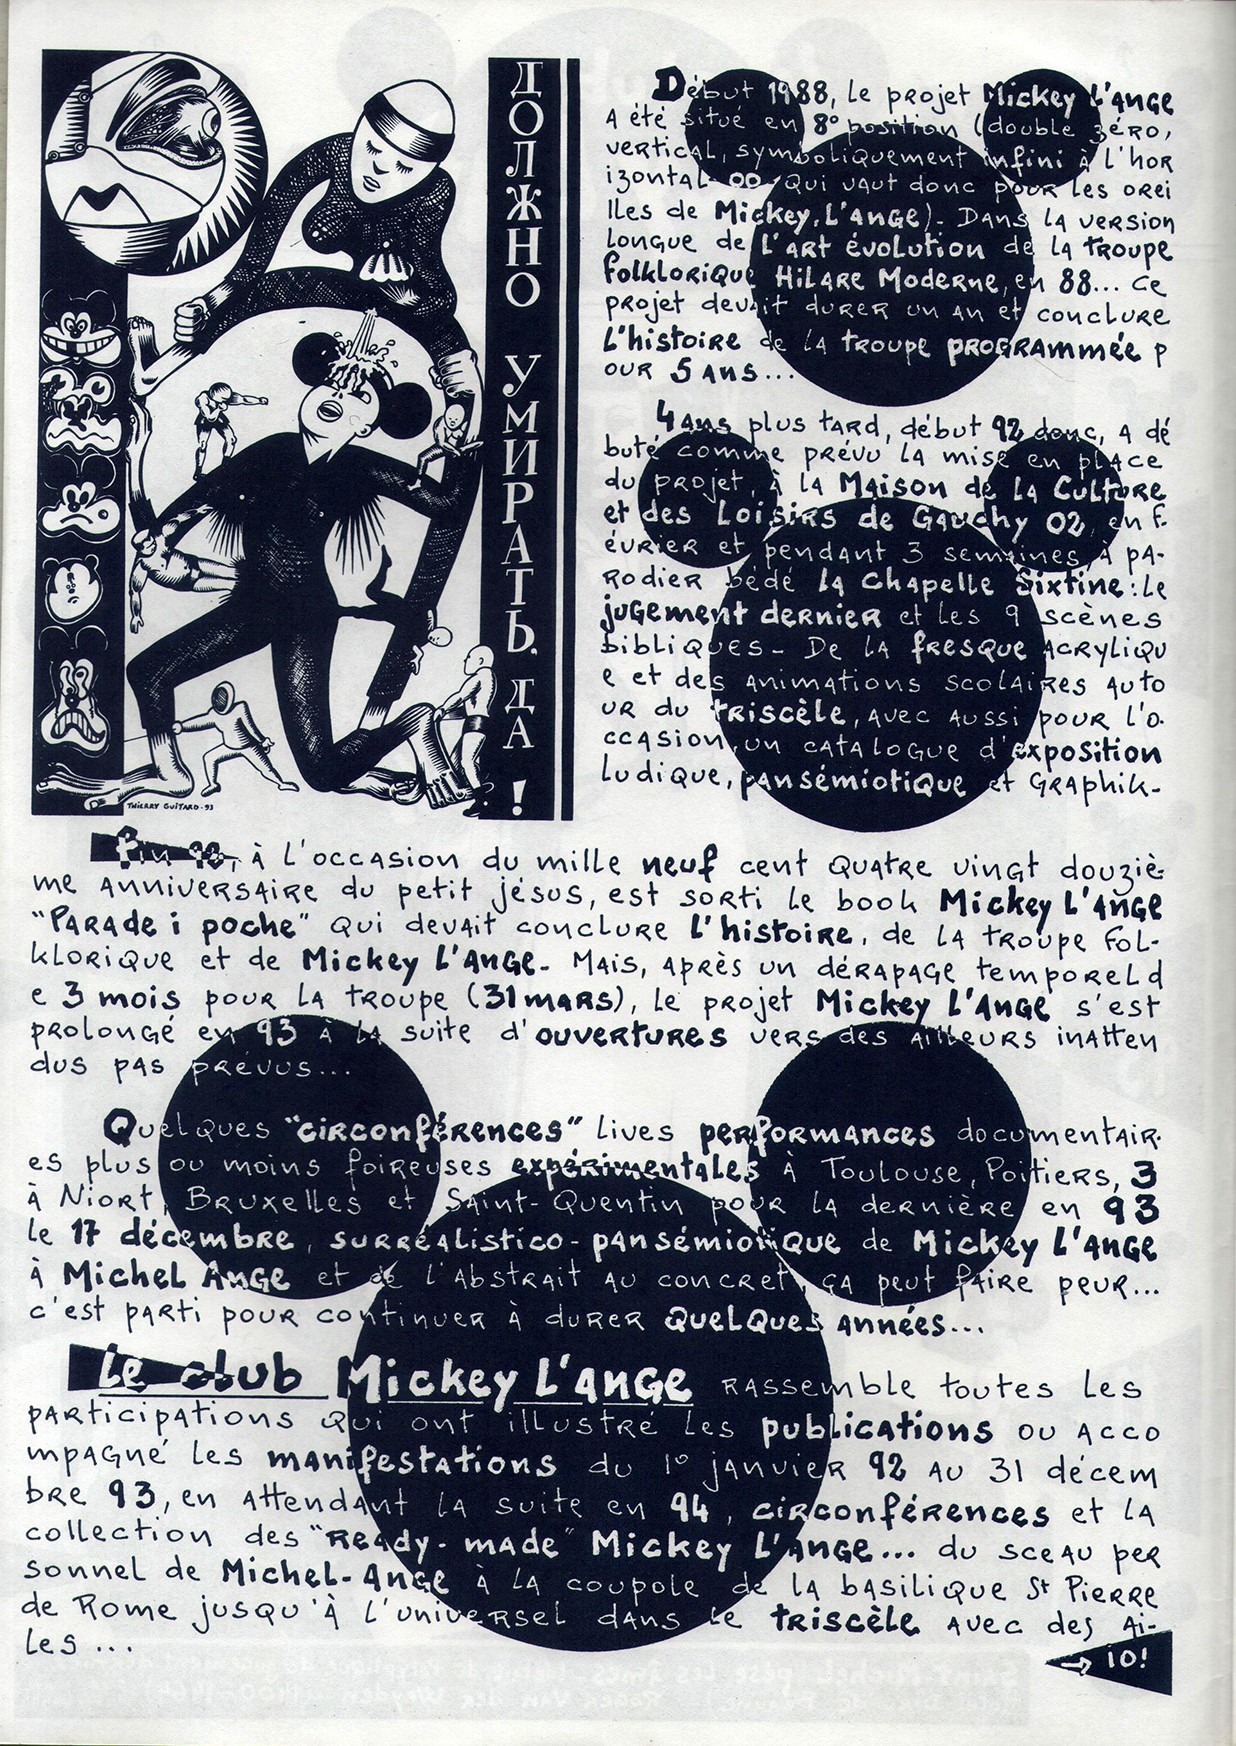 ДОЛЖНО УМИРАТЬ. ДА!
THIERRY GUITARD-93
Début 1988, le projet Mickey L'ange
a été situé en 8° position (double zéro,
vertical, symboliquement infini à l'hor
izontal 00 qui vaut donc pour les orei
lles de Mickey, L'ange). Dans la version
longue de l'art évolution de la troupe
folklorique Hilare Moderne, en 88... ce
projet devait durer un an et conclure
l'histoire de la troupe programmée p
our 5 ans...
4 ans plus tard, début 92 donc, a dé
buté comme prévu la mise en place
du projet, à la Maison de la Culture
et des Loisirs de Gauchy 02, en f-
évrier et pendant 3 semaines, à pa-
rodier bédé la Chapelle Sixtine: le
jugement dernier et les 9 scènes
bibliques - De la fresque acryliqu
e et des animations scolaires auto
ur du triscèle, avec aussi pour l'o-
ccasion, un catalogue d'exposition
ludique, pansémiotique et graphik-
fin 92, à l'occasion du mille neuf cent quatre vingt douziè-
me anniversaire du petit jésus, est sorti le book Mickey L'ange
"Parade i poche" qui devait conclure l'histoire, de la troupe fol-
klorique et de Mickey L'ange. Mais, après un dérapage temporel d
e 3 mois pour la troupe (31 mars), le projet Mickey L'ange s'est
prolongé en 93 à la suite d'ouvertures vers des ailleurs inatten
dus pas prévus...
Quelques "circonférences" lives performances documentair-
es plus ou moins foireuses expérimentales à Toulouse, Poitiers, 3
à Niort, Bruxelles et Saint-Quentin pour la dernière en 93
le 17 décembre, surréalistico-pansémiotique de Mickey L'ange
à Michel Ange et de l'abstrait au concret, ça peut faire peur...
c'est parti pour continuer à durer quelques années...
Le club Mickey L'ange rassemble toutes les
participations qui ont illustré les publications ou acco
mpagné les manifestations du 1° janvier 92 au 31 décem
bre 93, en attendant la suite en 94, circonférences et la
collection des "ready-made" Mickey L'ange... du sceau per
sonnel de Michel-Ange à la coupole de la basilique St Pierre
de Rome jusqu'à l'universel dans le triscèle avec des ai-
les...
→ 10!